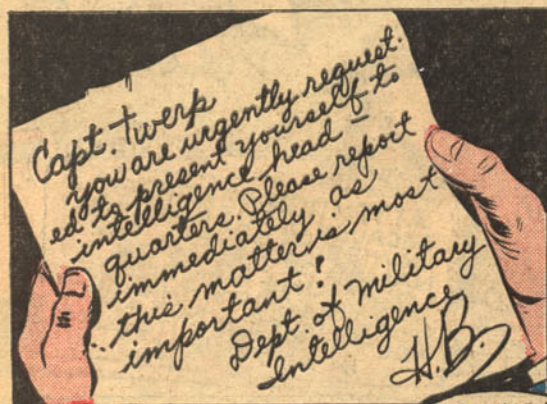 Capt. Twerp
you are urgently request-
ed to present yourself to
intelligence head-
quarters. Please report
immediately as
this matter is most
important!
Dept. of Military
Intelligence
H.B.